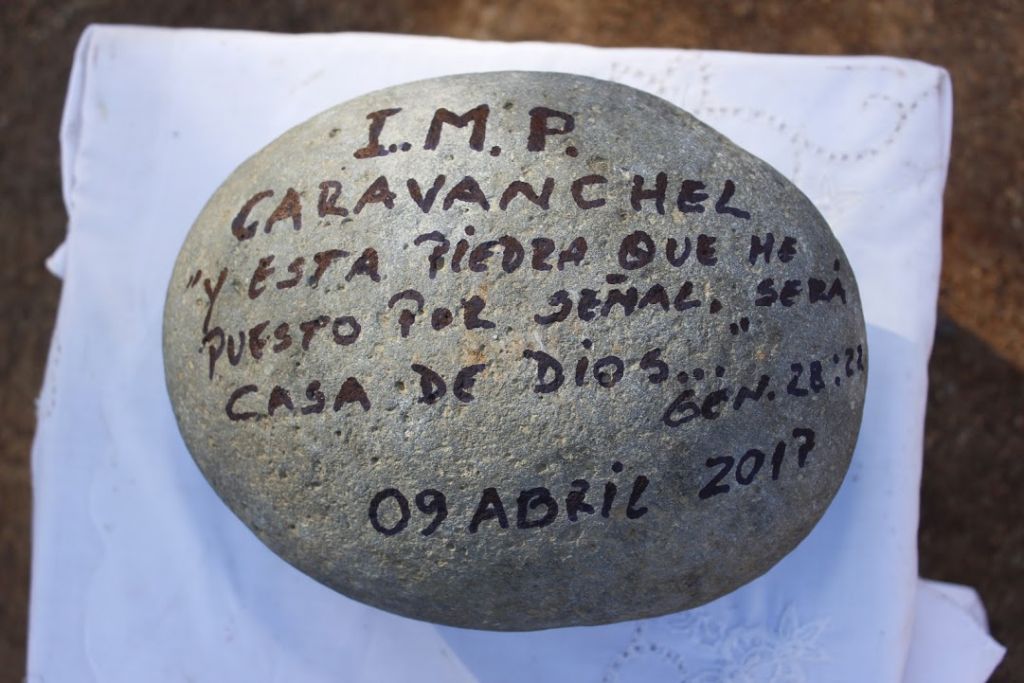 I.M.P.
CARAVANCHEL
"Y ESTA PIEDRA QUE HE
PUESTO POR SEÑAL, SERÁ
CASA DE DIOS..."
GEN. 28:22
09 ABRIL 2017